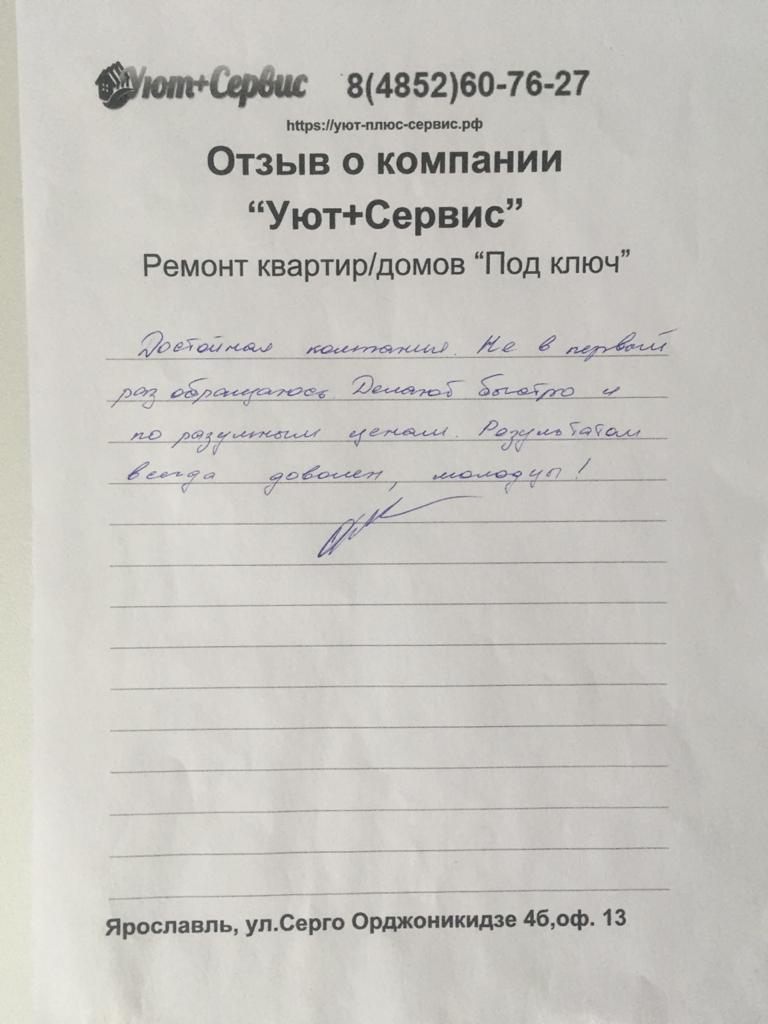 Уют+Сервис 8(4852)60-76-27
https://уют-плюс-сервис.рф
Отзыв о компании
“Уют+Сервис”
Ремонт квартир/домов “Под ключ”
Достойная компания. Не в первый
раз обращаюсь. Делают быстро и
по разумным ценам. Результатом
всегда доволен, молодцы!
Ярославль, ул.Серго Орджоникидзе 4б,оф. 13